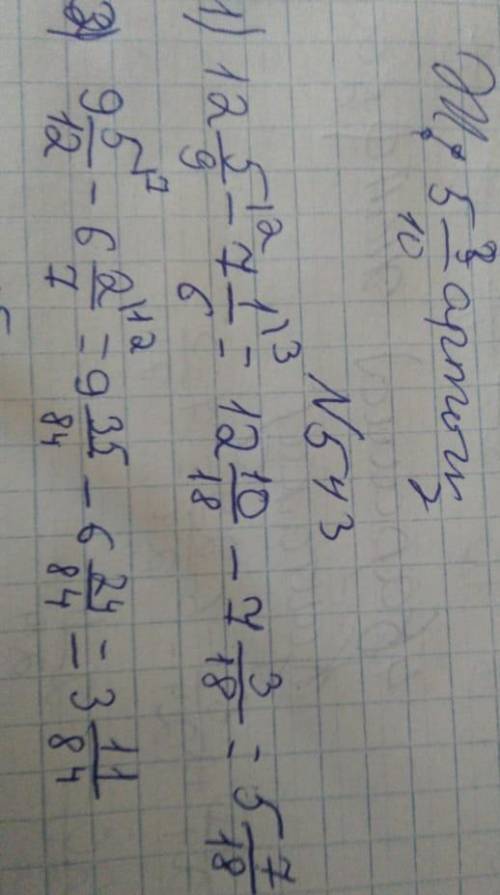 5 3/10 артоги
N 543
1) 12 5/9 \2 − 7 1/6 \3 = 12 10/18 − 7 3/18 = 5 7/18
3) 9 5/12 \7 − 6 2/7 \12 = 9 35/84 − 6 24/84 = 3 11/84